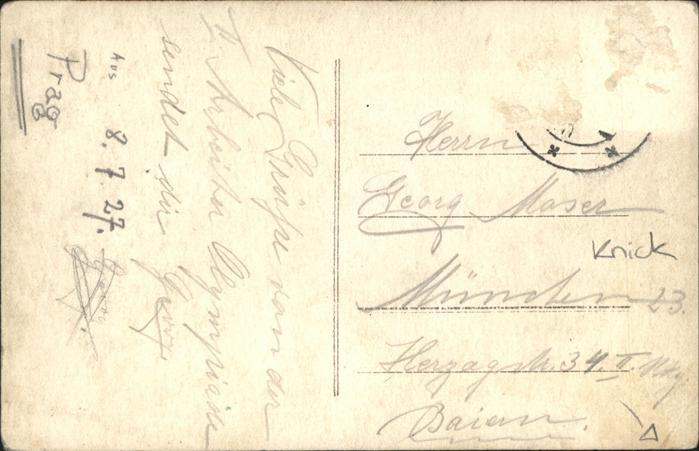 Prag
Aus 8.7.27.
Viele Grüße von der
II. Arbeiter Olympiade
sendet dir Georg
Herrn
Georg Moser
München 23.
Herzogstr. 34 II.
Baiern.
Knick